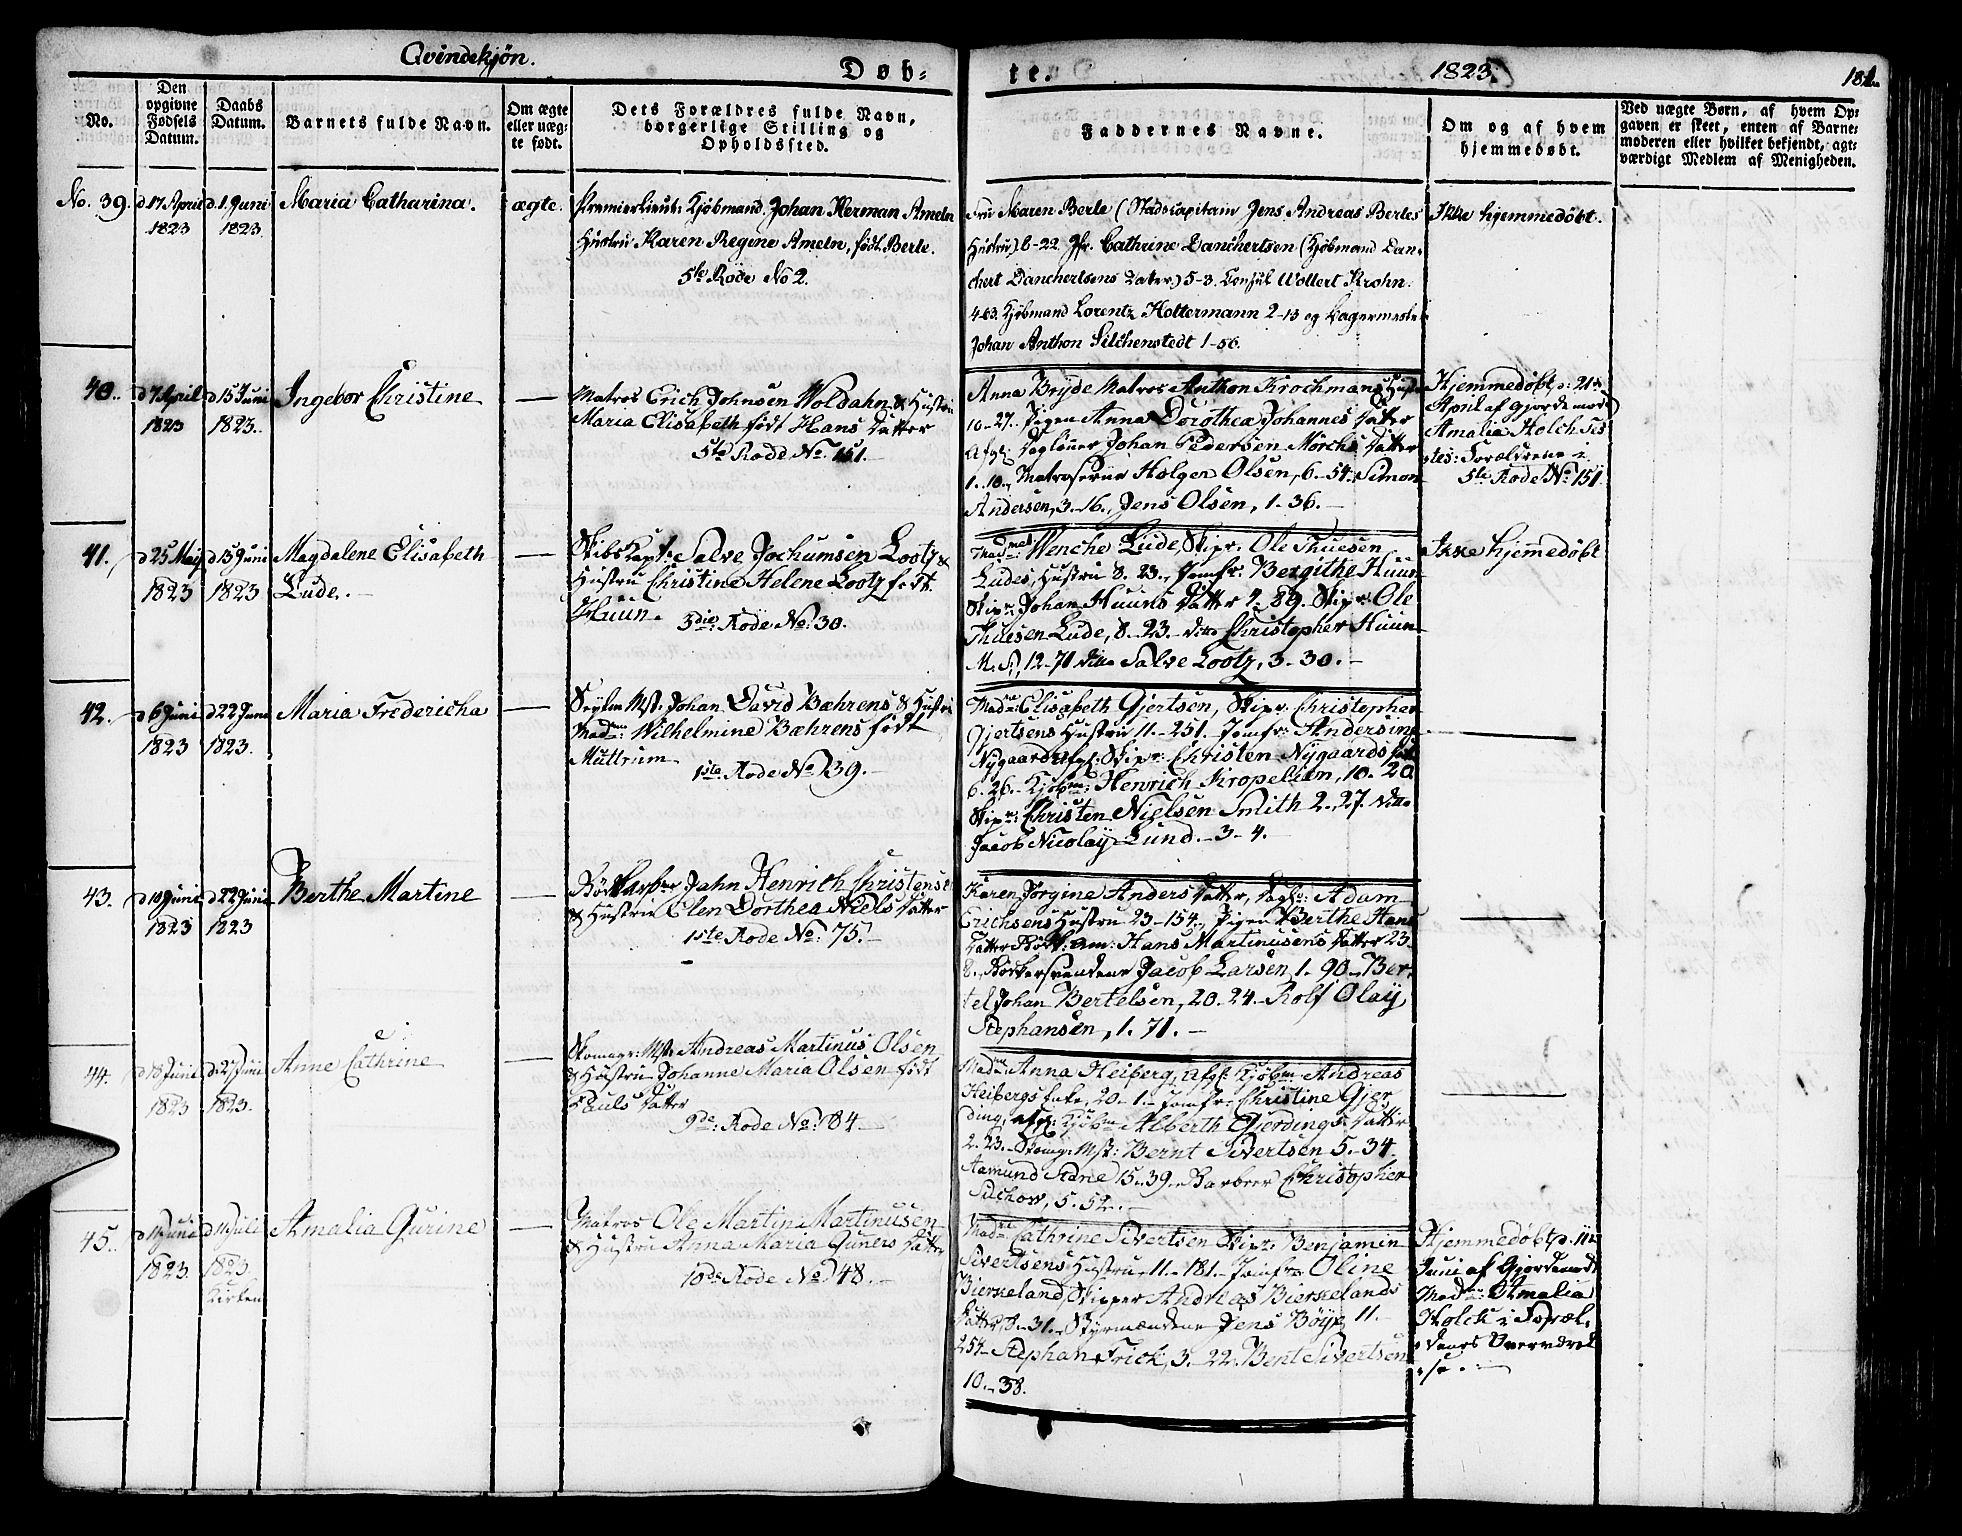 Qvindekjøn.
Døb-
te.
1823.
181.
No.
Den opgivne Fødsels Datum.
Daabs Datum.
Barnets fulde Navn.
Om ægte eller uæg- te født.
Dets Forældres fulde Navn, borgerlige Stilling og Opholdssted.
Faddernes Navne.
Om og af hvem hjemmedøbt.
Ved uægte Børn, af hvem Op- gaven er skeet, enten af Barne- moderen eller hvilket bekjendt, agt- værdigt Medlem af Menigheden.
No. 39.
d. 17 April
1823
d. 1 Juni
1823
Maria Catharina.
ægte.
Premierlieut: Kjøbmand Johan Herman Ameln
Hustru Karen Regine Ameln, født Berle.
5te Rode No 2.
Fru Maren Berle (Stadscapitain Jens Andreas Berles
Hustru) 8-22. Jfr. Cathrine Danchertsen (Kjøbmand Dan-
chert Danchertsens Datter) 5-3. Consul Wollert Krohn
4-83. Kjøbmand Lorentz Holtermann 2-13 og Lagermester
Johan Anthon Silchenstedt 1-56.
Ikke hjemmedøbt.
40.
d 7 April
1823
d 15 Juni
1823.
Ingebor Christine
Matros Erich Johnsen Woldahn & Hustru
Maria Elisabeth født Hans Datter
5te Rode No: 151.
Anna Bryde Matros Anthon Krochmans Hust
10-27. Pigen Anna Dorothea Johannes Datter
Afgl: Dagløner Johan Pedersen Mörchs Datter
1.-10., Matroserne Holger Olsen, 6-54. Simon
Andersen, 3-16., Jens Olsen, 1-36.
Hjemmedøbt, d: 21de
April af Gjordemod
Amalia Holch
Forældrene i
5te Rode No 151
41.
d 25 May
1823
d 15 Juni
1823
Magdalene Elisabeth
Lude.
Skibs Kapt: Salve Jochumsen Lootz &
Hustru Christine Helene Lootz født
Huun.
3die Rode No: 30.
Madme: Wenche Lude, Skipr: Ole Thuesen
Ludes, Hustru 8. 23., Jomfr: Bergithe Huun
Skipr: Johan Huuns Datter 7. 89. Skipr: Ole
Thuesen Lude, 8-23. ditto Christopher Huun
M: S, 12-71 ditto Salve Lootz, 3-30.
Ikke hjemmedøbt
42.
d 6 Juni
1823
d 22 Juni
1823.
Maria Fredericha
Seylm Mst: Johan David Bæhrens & Hustru
Madme: Wilhelmine Bæhrens født
Muttrum
1ste Rode No: 39.
Madme: Elisabeth Gjertsen, Skipr: Christopher
Gjertsens Hustru 11-251. Jomfr: Andersine
Nygaard afgl: Skipr: Christen Nygaards
6-26. Kjøbm: Henrich Kropelien, 10-20
Skipr: Christen Nielsen Smith 2-27. ditto
Jacob Nicolay Lund.-3-4.
43.
d 10 Juni
1823
d 22 Juni
1823
Berthe Martine
John Henrich Christensen
& Hustru Elen Dorthea Niels Datter
1ste Rode No: 75.
Karen Jorgine Anders Datter, Dagl: Adam
Erichsens Hustru 23-154., Pigen Berthe Hans
Datter Hans Martinusens Datter 23
8. Bødkersvendene Jacob Larsen, 1-90. Ber-
tel Johan Bertelsen, 20-24. Rolf Olay
Stephansen, 1. 71.
44.
d 18 Juni
1823
d. 27 Juni
1823.
Anne Cathrine
Skomagr: Mst: Andreas Martinus Olsen
& Hustru Johanne Maria Olsen født
Pauls Datter
9de: Rode No: 84
Madme Anna Heiberg, afgl: Kjøbm: Andreas
Heibergs Enke, 20-1.- Jomfr: Christine Gjer
ding, afgl: Kjøbm Alberth Gjerdings Datter
2-23. Skomgr: Mst: Bernt Sivertsen 5-34.
Aamund Stene 15-39. Barbeer Christopher
Suchow, 5. 52.
45.
d 11 Juni
1823.
d 11 Juli
1823.
Kirken
Amalia Gurine
Matros Ole Martin Martinusen
& Hustru Anna Maria Guners Datter
10de Rode No: 48.
Madme Cathrine Sivertsen Skipr: Benjamin
Sivertsens Hustru, 11-181. Jomfr: Oline
Bierkeland, Skipper Andreas Bierkelands
Datter 3-31. Styrmændene Jens Böye 11-
254 Stephan Frick, 3-22. Bent Sivertsen
10-38.
Hjemmedøbt, d. 11te
Juni af Gjordemod
Madme: Amalia
Holck i Foræl-
drenes Overværel
se.